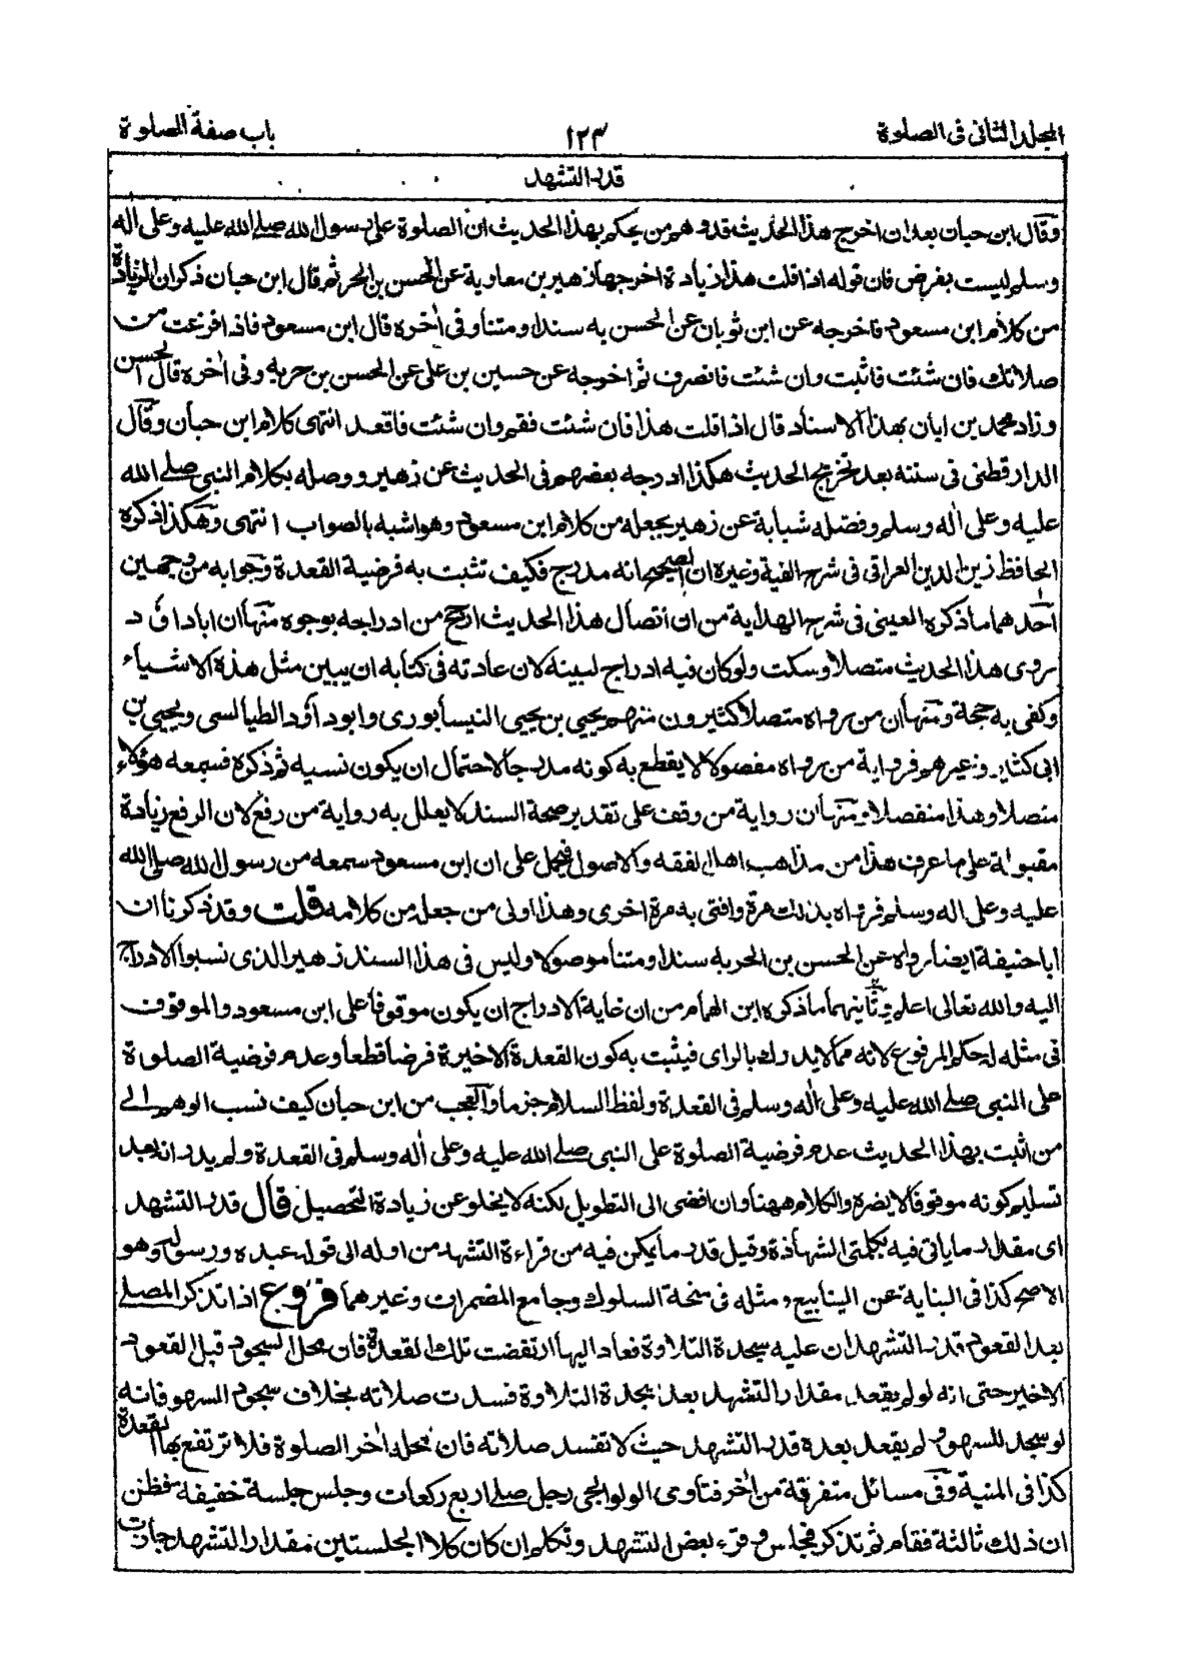 المجلد الثانی فی الصلوة
١٢٣
باب صفة الصلوة
قدر التشهد
وقال ابن حبان بعد ان اخرج هذا الحديث قد وهم من يحكم بهذا الحديث ان الصلوة على رسول الله صلے الله عليه وعلى اله
وسلم ليست بفرض فان قوله اذا قلت هذا زيادة اخرجها زهير بن معاوية عن الحسن بن الحر ثم قال ابن حبان ذكر ان الزيادة
من كلام ابن مسعود فاخرجه عن ابن ثوبان عن الحسن به سندا ومتنا وفى اٰخره قال ابن مسعود فاذا فرغت من
صلاتك فان شئت فاثبت وان شئت فانصرف ثم اخرجه عن حسين بن على عن الحسن بن حر به وفى اٰخره قال الحسن
وزاد محمد بن ابان بهذا الاسناد قال اذا قلت هذا فان شئت فقم وان شئت فاقعد انتهى كلام ابن حبان وقال
الدارقطنى فى سننه بعد تخريج الحديث هكذا ادرجه بعضهم فى الحديث عن زهير ووصله بكلام النبى صلے الله
عليه وعلى اٰله وسلم وفصله شبابة عن زهير بجعله من كلام ابن مسعود وهو اشبه بالصواب انتهى وهكذا ذكره
الحافظ زين الدين العراقى فى شرح الفية وغيره ان الصحيح انه مدرج فكيف تثبت به فرضية القعدة وجوابه من وجهين
احدهما ما ذكره العينى فى شرح الهداية من ان اتصال هذا الحديث ارجح من ادراجه بوجوه منها ان ابا داؤد
روى هذا الحديث متصلا وسكت ولو كان فيه ادراج لبينه لان عادته فى كتابه ان يبين مثل هذه الاشياء
وكفى به حجة ومنها ان من رواه متصلا كثيرون منهم يحيى بن يحيى النيسابورى وابو داؤد الطيالسى ويحيى بن
ابى كثير وغيرهم فرواية من رواه مفصولا لا يقطع به كونه مدرجا لاحتمال ان يكون نسيه ثم ذكره فسمعه هؤلاء
متصلا وهذا منفصلا ومنها ان رواية من وقف على تقدير صحة السند لا يعلل به رواية من رفع لان الرفع زيادة
مقبولة على ما عرف هذا من مذاهب اهل الفقه والاصول فيحمل على ان ابن مسعود سمعه من رسول الله صلى الله
عليه وعلى اله وسلم فرواه بذلك مرة وافتى به مرة اخرى وهذا اولى من جعله من كلامه قلت وقد ذكرنا ان
ابا حنيفة ايضا رواه عن الحسن بن الحر به سندا ومتنا موصولا وليس فى هذا السند زهير الذى نسبوا الادراج
اليه والله تعالى اعلم وثانيهما ما ذكره ابن الهمام من ان غاية الادراج ان يكون موقوفا على ابن مسعود والموقوف
فى مثله له حكم المرفوع لانه مما لا يدرك بالراى فيثبت به كون القعدة الاخيرة فرضا قطعا وعدم فرضية الصلوة
على النبى صلے الله عليه وعلى اٰله وسلم فى القعدة ولفظ السلام جزما والعجب من ابن حبان كيف نسب الوهم الے
من اثبت بهذا الحديث عدم فرضية الصلوة على النبى صلے الله عليه وعلى اٰله وسلم فى القعدة ولم يدر انه بعد
تسليم كونه موقوفا لا يضره والكلام ههنا وان افضى الى التطويل لكنه لا يخلو عن زيادة التحصيل قال قدر التشهد
اى مقدار ما ياتى فيه بكلمتى الشهادة وقيل قدر ما يمكن فيه من قراءة التشهد من اوله الى قوله عبده ورسوله وهو
الاصح كذا فى البناية عن الينابيع ومثله فى منحة السلوك وجامع المضمرات وغيرهما فروع اذا تذكر المصلے
بعد القعود قدر التشهد ان عليه سجدة التلاوة فعاد اليها ارتفضت تلك القعدة فان محل السجود قبل القعود
الاخير حتى انه لو لم يقعد مقدار التشهد بعد سجدة التلاوة فسدت صلاته بخلاف سجود السهو فانه
لو سجد للسهو ولم يقعد بعده قدر التشهد حيث لا تفسد صلاته فان محله اٰخر الصلوة فلا ترتفع بها القعدة
كذا فى المنية وفى مسائل متفرقة من اٰخر فتاوى الولوالجى رجل صلے اربع ركعات وجلس جلسة خفيفة فظن
ان ذلك ثالثة فقام ثم تذكر فجلس وقرء بعض التشهد وتكلم ان كان كلا الجلستين مقدار التشهد جازت